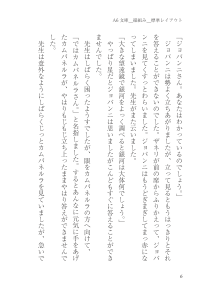 A6文庫_縦組み_標準レイアウト
「ジョバンニさん。あなたはわかっているのでしょう。」
ジョバンニは勢よく立ちあがりましたが、立って見るともうはっきりとそれ
を答えることができないのでした。ザネリが前の席からふりかえって、ジョバ
ンニを見てくすっとわらいました。ジョバンニはもうどぎまぎしてまっ赤にな
ってしまいました。先生がまた云いました。
「大きな望遠鏡で銀河をよっく調べると銀河は大体何でしょう。」
やっぱり星だとジョバンニは思いましたがこんどもすぐに答えることができ
ませんでした。
先生はしばらく困ったようすでしたが、眼をカムパネルラの方へ向けて、
「ではカムパネルラさん。」と名指しました。するとあんなに元気に手をあげ
たカムパネルラが、やはりもじもじ立ち上ったままやはり答えができませんで
した。
先生は意外なようにしばらくじっとカムパネルラを見ていましたが、急いで
6